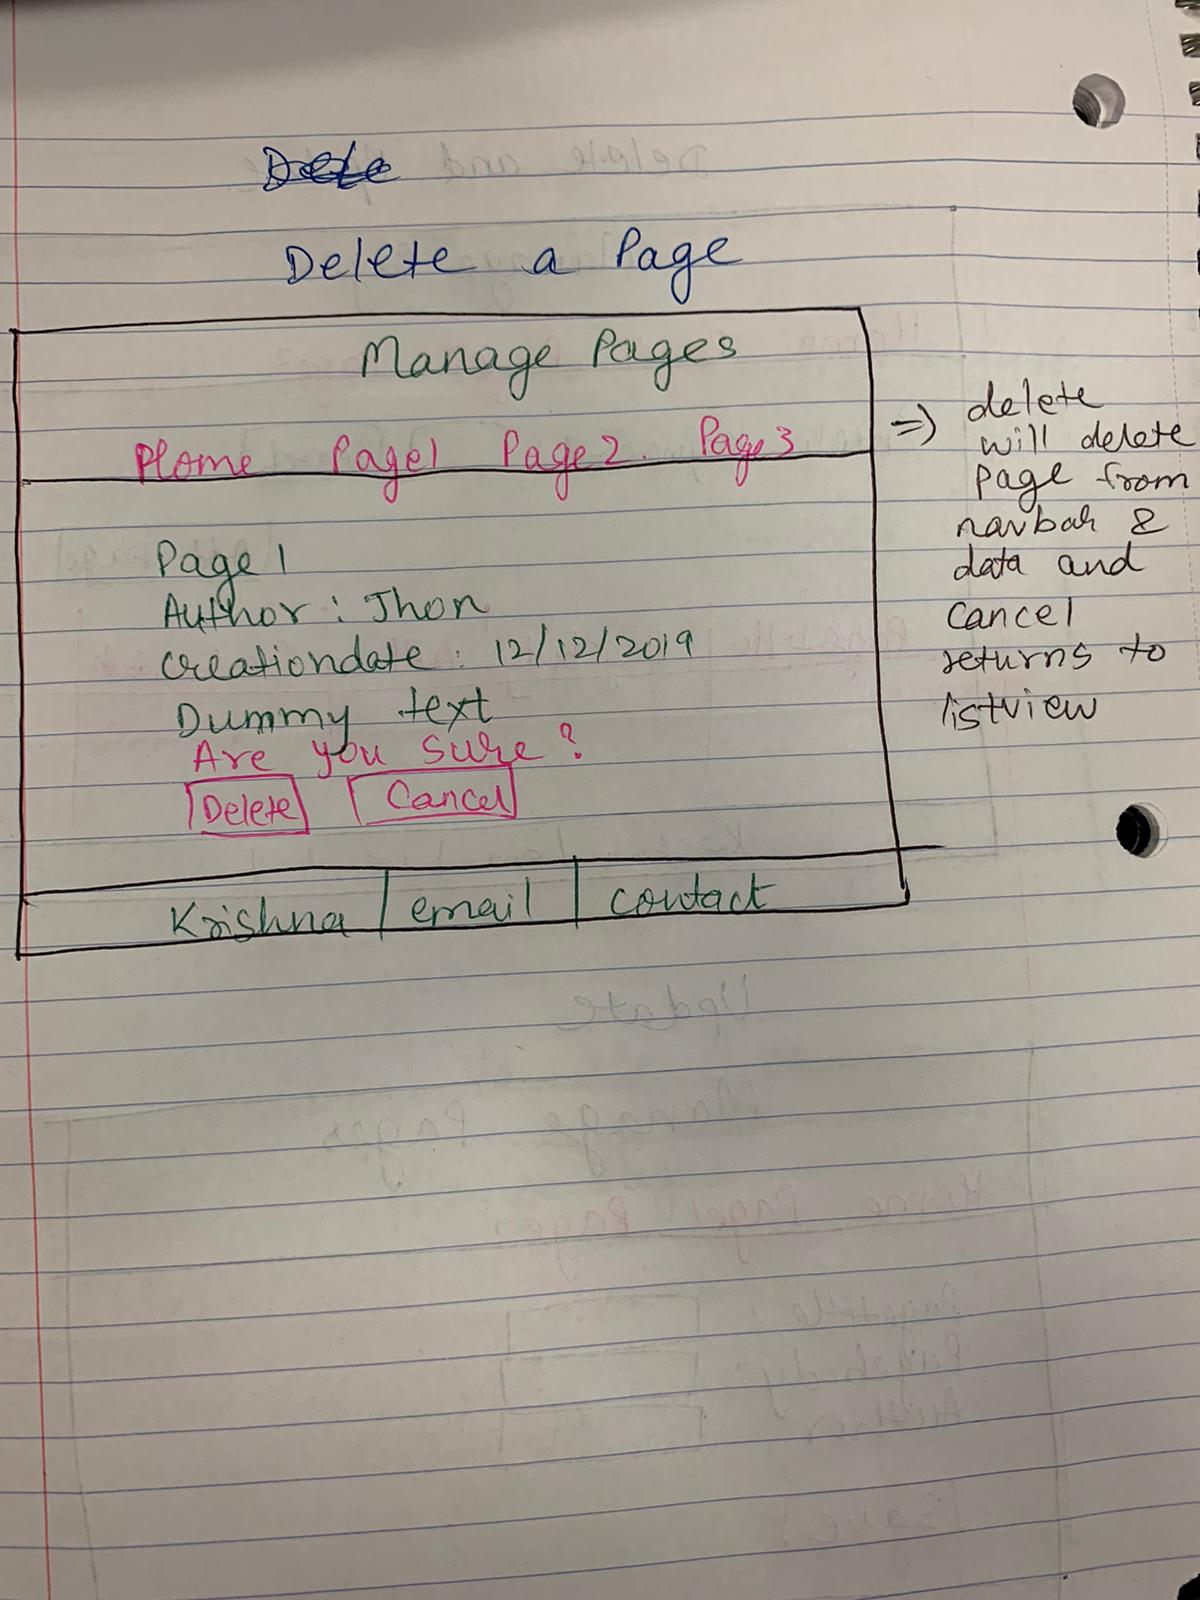 Delete a Page
Manage Pages
Home Page1 Page2. Page3
Page 1
Author : Jhon
creationdate : 12/12/2019
Dummy text
Are you sure?
Delete Cancel
Krishna | email | contact
=> delete
will delete
page from
navbar &
data and
cancel
returns to
listview